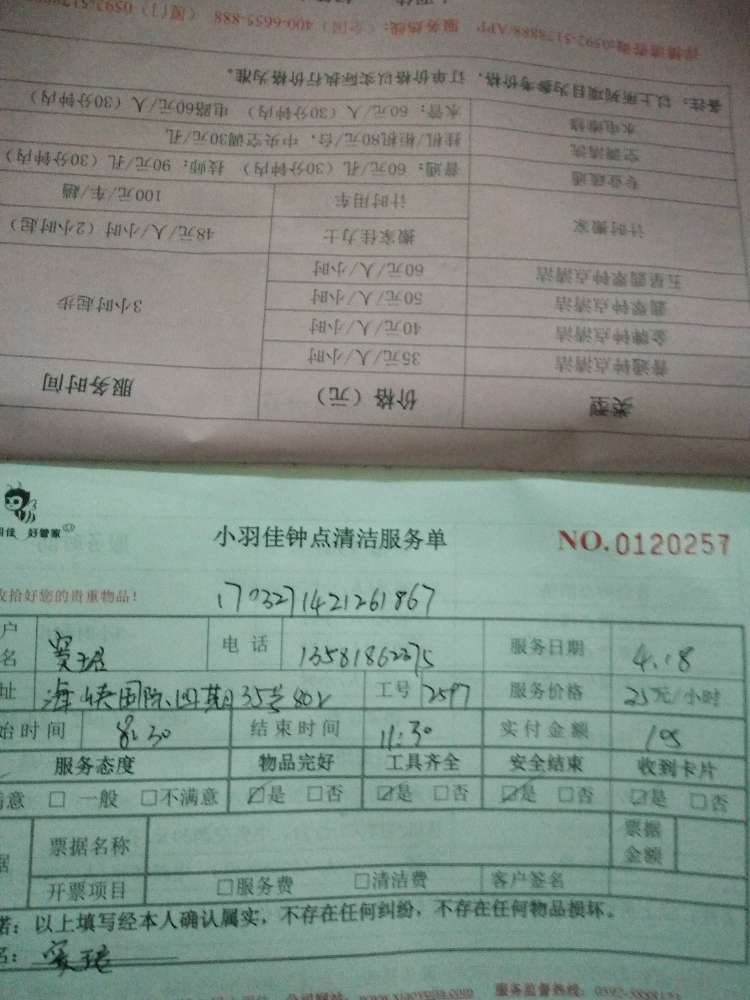 类型 价格(元) 服务时间
普通钟点清洁 35元/人/小时
金牌钟点清洁 40元/人/小时
翡翠钟点清洁 50元/人/小时 3小时起步
五星翡翠钟点清洁 60元/人/小时
计时搬家 搬家佳力士 48元/人/小时(2小时起)
计时用车 100元/车/趟
专业疏通 普通:60元/孔(30分钟内) 技师:90元/孔(30分钟内)
空调清洗 挂机/柜机80元/台,中央空调30元/孔
水电维修 水管:60元/人(30分钟内) 电路60元/人(30分钟内)
备注:以上所列项目为参考价格,订单价格以实际执行价格为准。
服务热线:(全国)400-6655-888 (厦门)
好管家
小羽佳钟点清洁服务单 NO.0120257
拾好您的贵重物品! 1703271421261867
电话 服务日期 4.18
海峡国际四期35号802 工号 2597 服务价格 25元/小时
始时间 8:30 结束时间 11:30 实付金额 105
服务态度 物品完好 工具齐全 安全结束 收到卡片
满意 □一般 □不满意 ☑是 □否 ☑是 □否 ☑是 □否 ☑是 □否
票据名称 票据金额
开票项目 □服务费 □清洁费 客户签名
诺:以上填写经本人确认属实,不存在任何纠纷,不存在任何物品损坏。
服务监督热线: